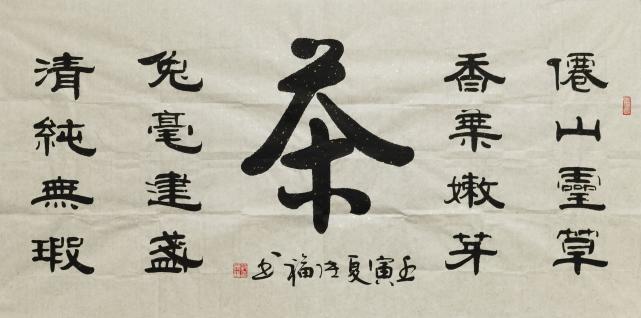 僊山靈草
香葉嫩芽
茶
兔毫建盞
清純無瑕
壬寅夏福书